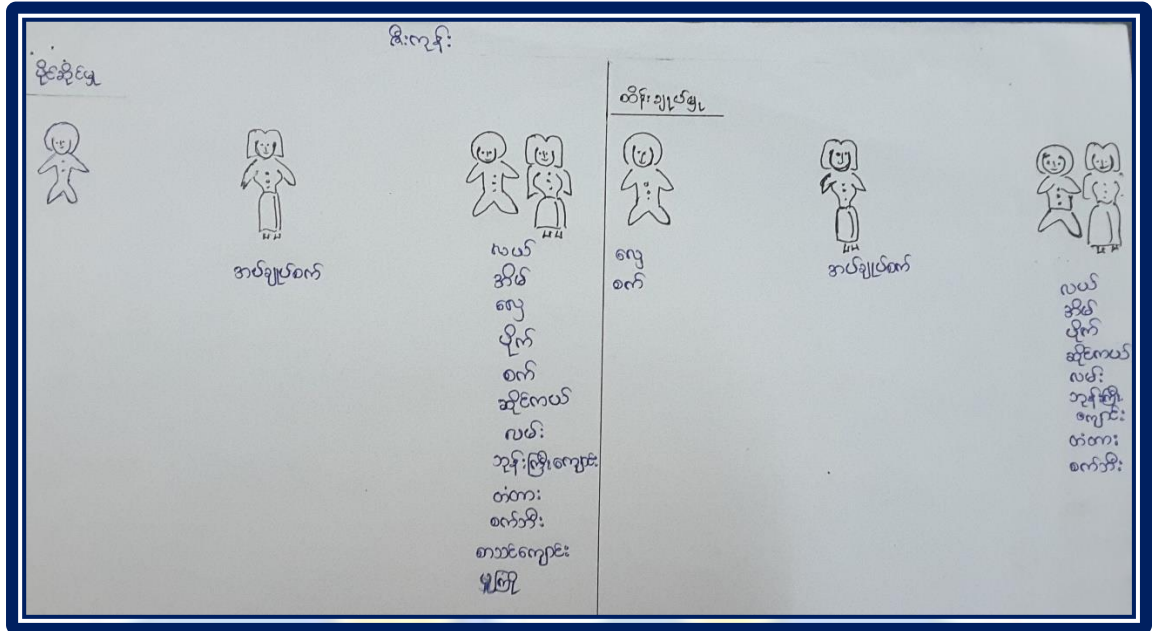 ဇီးကုန်း
ပိုင်ဆိုင်မှု
အပ်ချုပ်စက်
လယ်
အိမ်
လှေ
ပိုက်
စက်
ဆိုင်ကယ်
လမ်း
ဘုန်းကြီးကျောင်း
တံတား
စက်ဘီး
စာသင်ကျောင်း
မူကြို
ထိန်းချုပ်မှု
လှေ
စက်
အပ်ချုပ်စက်
လယ်
အိမ်
ပိုက်
ဆိုင်ကယ်
လမ်း
ဘုန်းကြီး
ကျောင်း
တံတား
စက်ဘီး